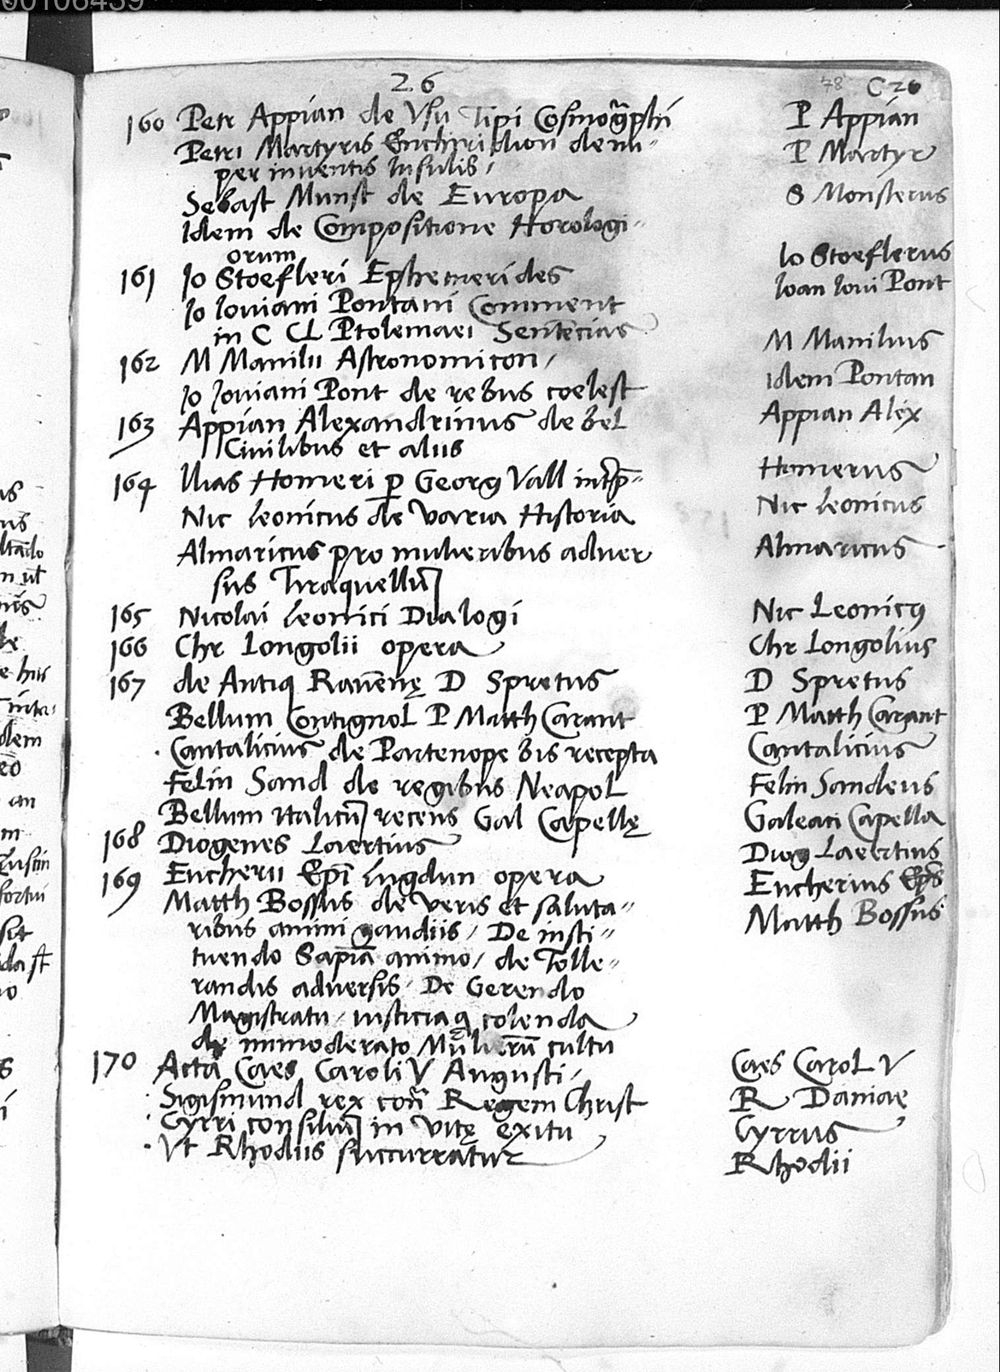 00106439
26
78 C 26
160 Petr Appian de Usu Tipi Cosmogrphi P Appian
Petri Martyris Enchiridion de nu-
per inventis Insulis, P Martyr
Sebast Munst de Europa S Monsterus
Idem de Compositione Horologi-
orum
161 Jo Stoefleri Ephemerides Io Stoeflerus
Jo Ioviani Pontani Comment Ioan Iovi Pont
in C CL Ptolemaei Sentēcias
162 M Manilii Astronomicon, M Manilius
Jo Joviani Pont de rebus coelest Idem Pontan
163 Appian Alexandrinus de bel Appian Alex
Civilibus et aliis
164 Ilias Homeri p Georg Vall intrp- Homerus
Nic leonicus de varia Historia Nic leonicus
Almaricus pro mulieribus adver Almaricus
sus Tiraquellū
165 Nicolai leonici Dialogi Nic Leonicꝯ
166 Chr Longolii opera Chr Longolius
167 de Antiq Ravēnę D Spretus D Spretus
Bellum Contignol P Matth Carant P Matth Carant
· Cantalicius de Partenope bis recepta Cantalicius
Felin Sand de regibus Neapol Felin Sandeus
Bellum Italicū recens Gal Capellę Galeati Capella
168 Diogenes Laertius Diog Laertius
169 Eucherii Epī Lugdun opera Eucherius Eps
Matth Bossus de veris et saluta- Matth Bossus
ribus animi gaudiis, De insti-
tuendo Sapiā animo, de Tolle-
randis adversis, De Gerendo
Magistratu, iusticiaq colenda
de immoderato Mulierū cultu
170 Acta Caes Caroli V Augusti, Caes Carol V
· Sigismund rex cōn Regem Christ R Daniae
· Cyrri consiliū in vitę exitu Cyrrus
· Vt Rhodiis succurratur Rhodii